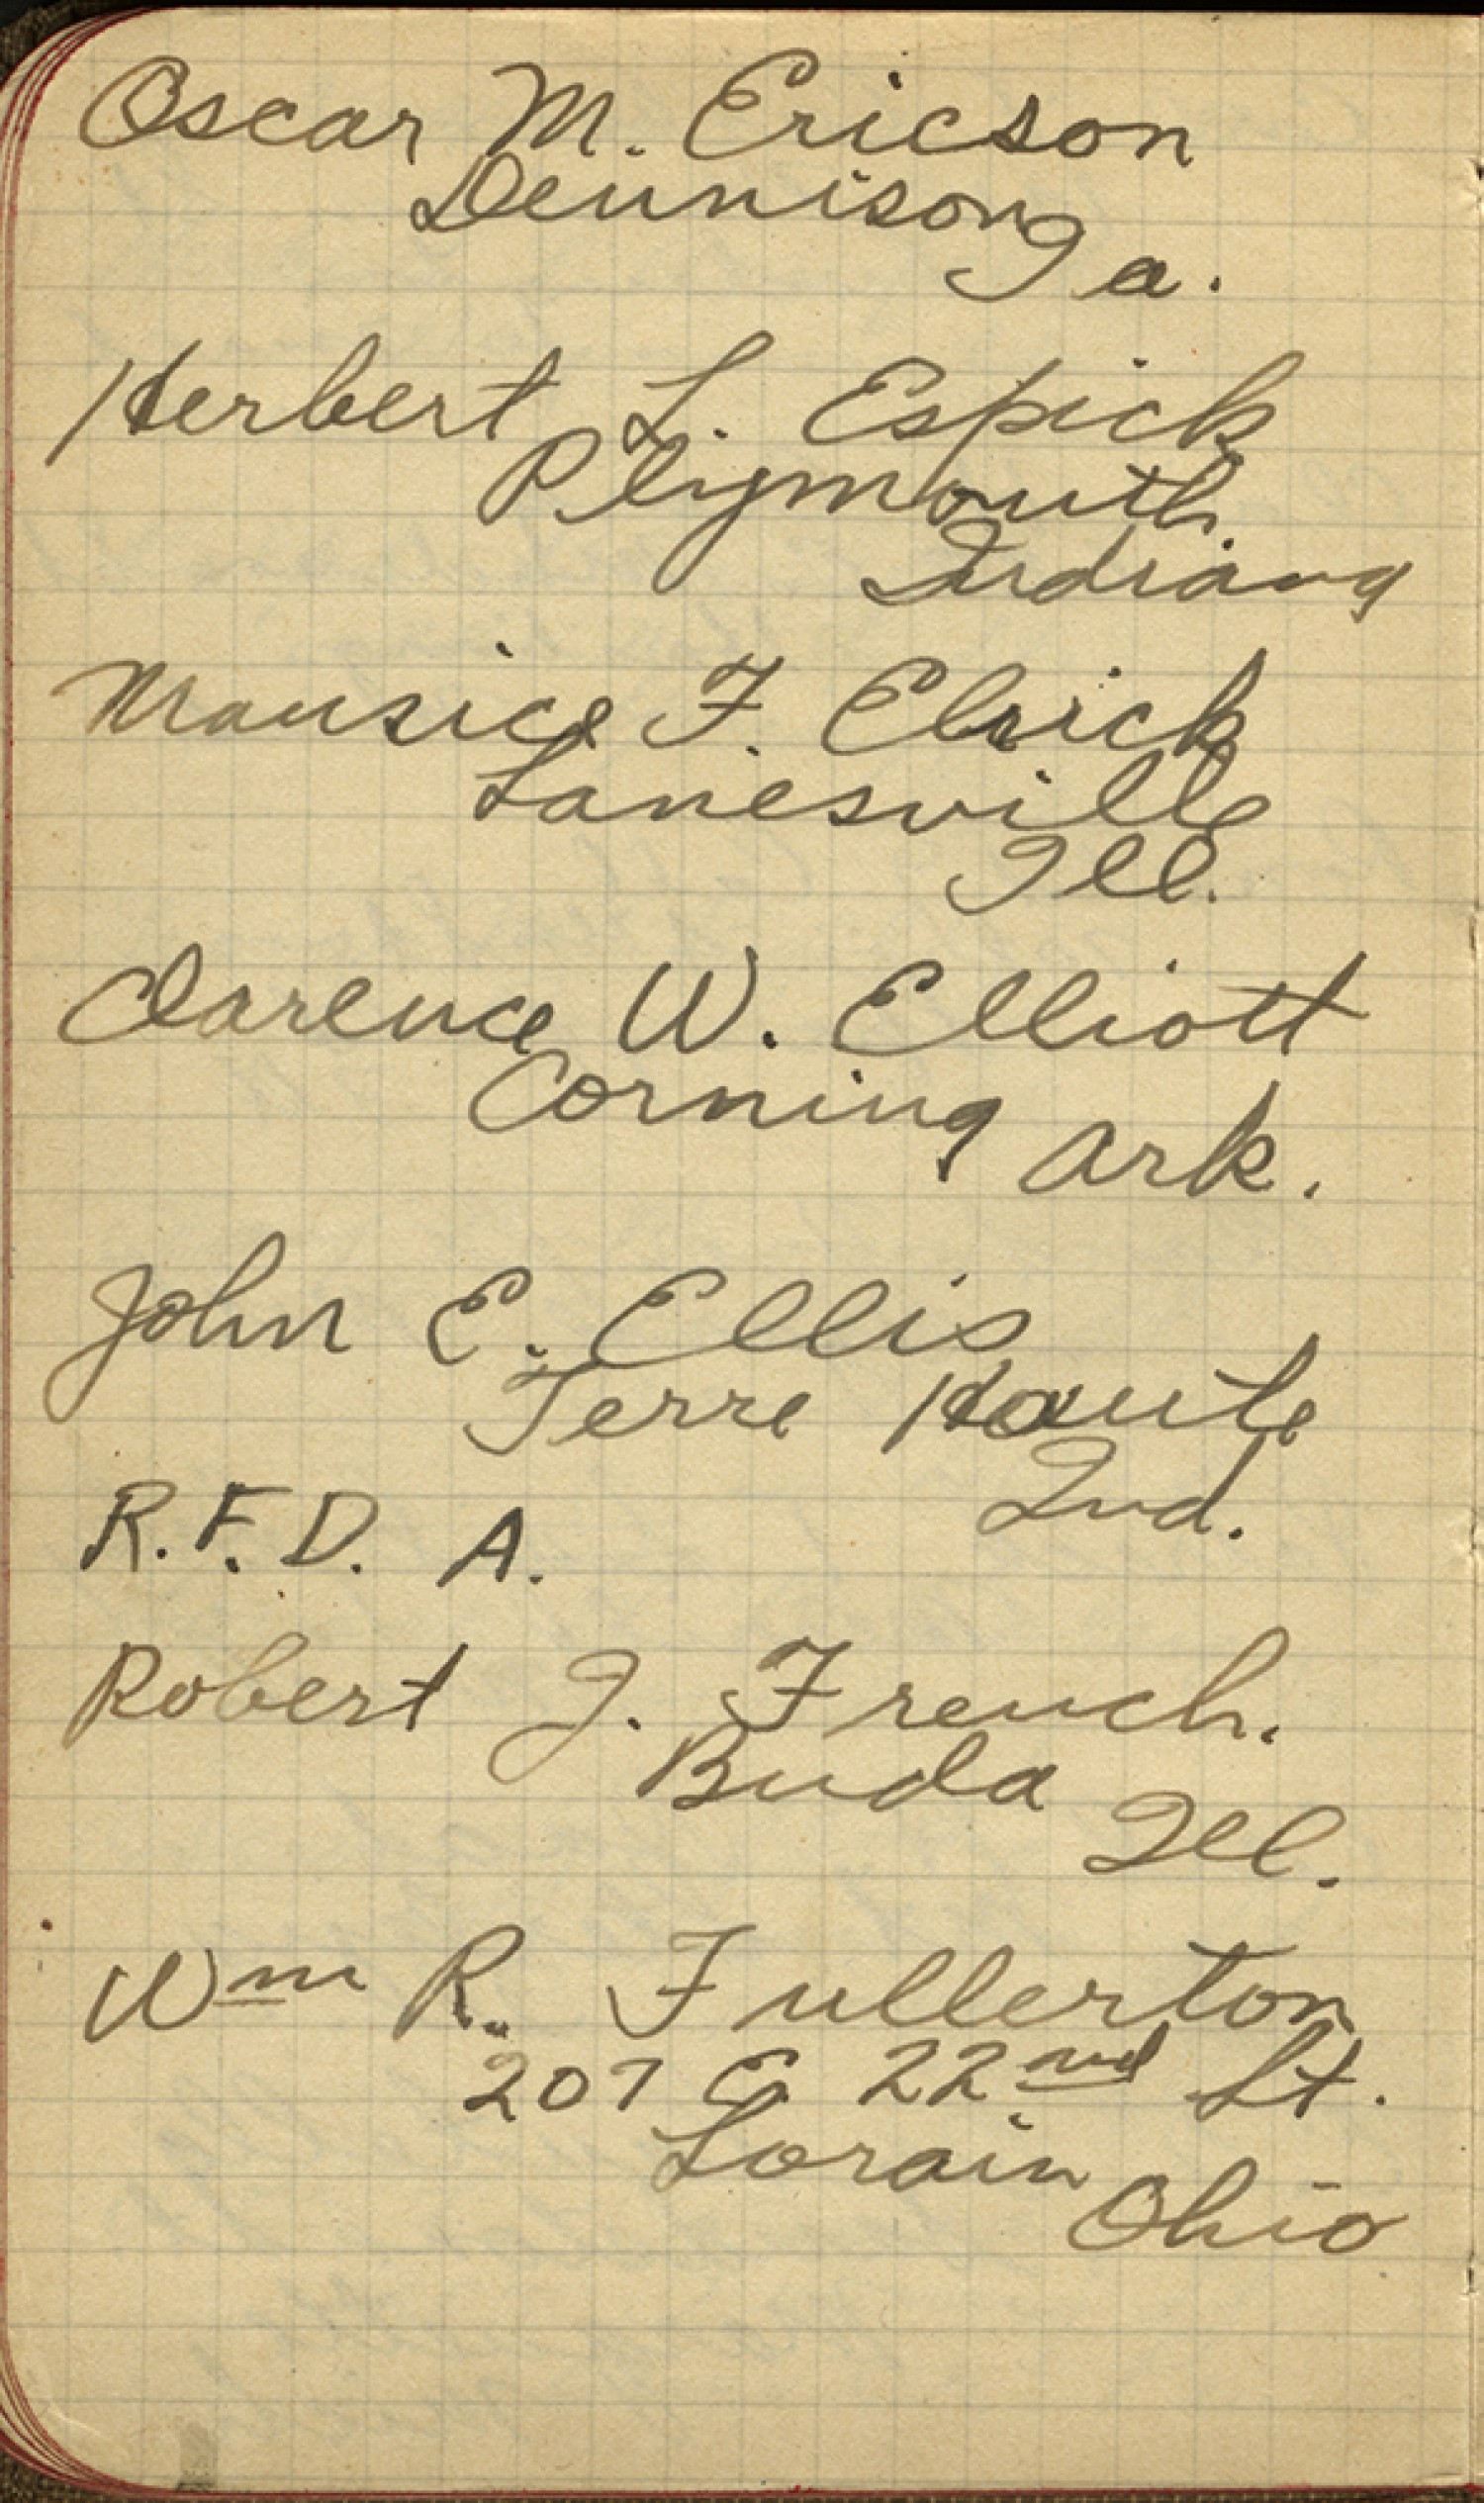 Oscar M. Ericson
Dennison
Ia.
Herbert L. Espick
Plymouth.
Indiana
Maurice F. Elrick
Lanesville
Ill.
Clarence W. Elliott
Corning
Ark.
John E. Ellis
Terre Haute
Ind.
R.F.D. A.
Robert J. French.
Buda
Ill.
Wm R. Fullerton
207 E 22nd St.
Lorain
Ohio